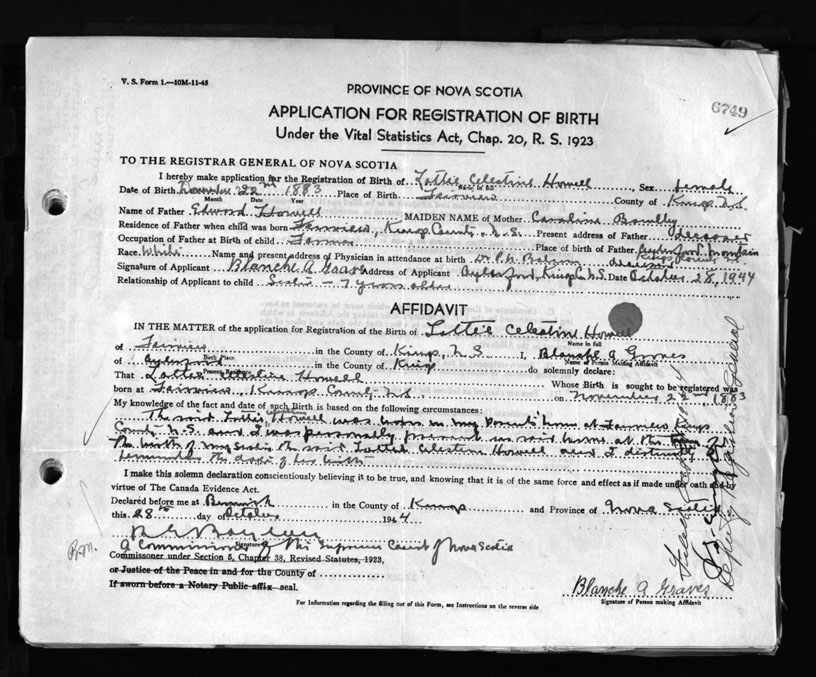 V. S. Form 1.—10M-11-45
6749
PROVINCE OF NOVA SCOTIA
APPLICATION FOR REGISTRATION OF BIRTH
Under the Vital Statistics Act, Chap. 20, R. S. 1923
TO THE REGISTRAR GENERAL OF NOVA SCOTIA
I hereby make application for the Registration of Birth of Lottie Celestine Howell, Sex female
Name in full
Date of Birth November 22nd 1883 Place of Birth Fairview County of Kings, N.S
Month Date Year
Name of Father Edward Howell MAIDEN NAME of Mother Caroline
Residence of Father when child was born Fairview, Kings County, N.S. Present address of Father Deceased
Occupation of Father at Birth of child Farmer Place of birth of Father Aylesford Mountain
Kings County
Race White Name and present address of Physician in attendance at birth Dr. P. deceased
Signature of Applicant Blanche A Graves Address of Applicant Aylesford, Kings Co. N.S. Date October 28, 1944
Relationship of Applicant to child Sister - 7 years older
AFFIDAVIT
IN THE MATTER of the application for Registration of the Birth of Lottie Celestine Howell
Name in full
of Fairview in the County of Kings, N S I, Blanche A Graves
Birth Place Name of Person Making Affidavit
of Aylesford in the County of Kings do solemnly declare:
Present
That Lottie Celestine Howell Whose Birth is sought to be registered was
born at Fairview, Kings County N.S. on November 22nd 1883
My knowledge of the fact and date of such Birth is based on the following circumstances:
The said Lottie Celestine Howell was born in my Parents' home at Fairview Kings
County N.S. and I was personally present in said home at the time of
the birth of my sister the said Lottie Celestine Howell and I distinctly
remember the date of her birth
I make this solemn declaration conscientiously believing it to be true, and knowing that it is of the same force and effect as if made under oath and by
virtue of The Canada Evidence Act.
Declared before me at Berwick in the County of Kings and Province of Nova Scotia
this 28th day of October 1944
Signature
A Commissioner of the Supreme Court of Nova Scotia
Commissioner under Section 5, Chapter 38, Revised Statutes, 1923,
or Justice of the Peace in and for the County of
If sworn before a Notary Public affix seal.
Blanche A Graves
Signature of Person making Affidavit
For Information regarding the filling out of this Form, see Instructions on the reverse side
Deputy Registrar General